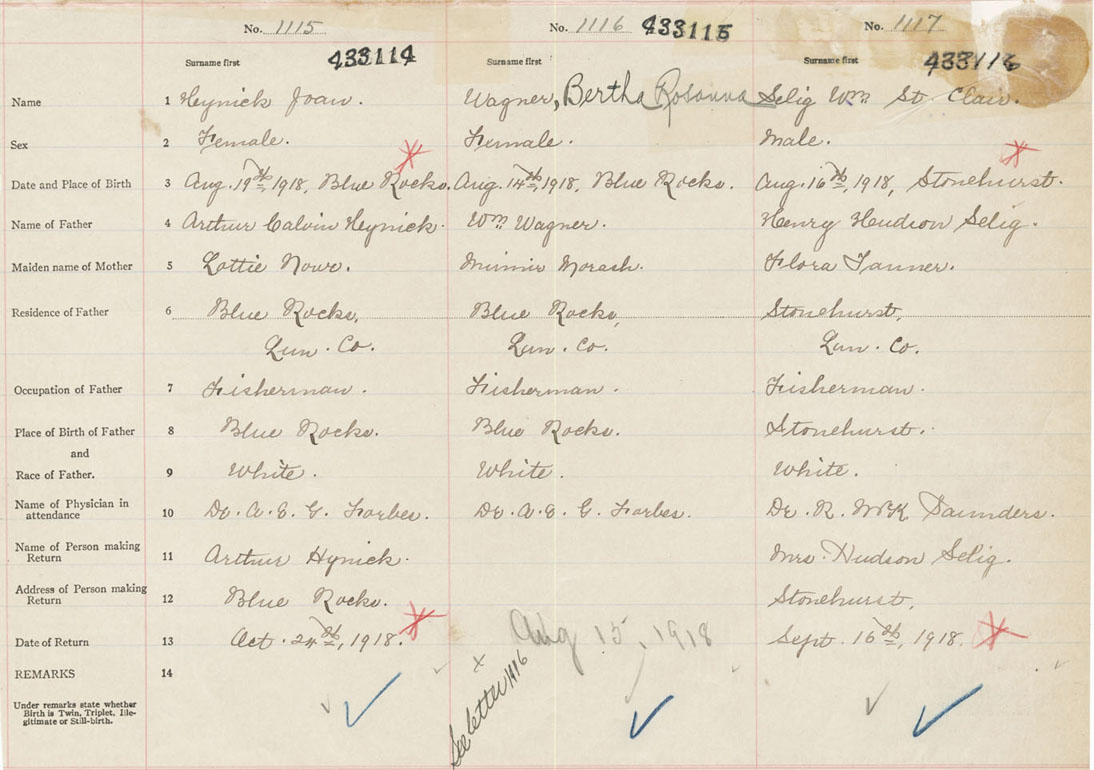 No. 1115 No. 1116 433115 No. 1117
433114 433116
Surname first Surname first Surname first
Name 1 Heynick Joan. Wagner, Bertha Rosanna Selig Wm St Clair.
Sex 2 Female. Female. Male.
Date and Place of Birth 3 Aug. 19th, 1918, Blue Rocks. Aug. 14th, 1918, Blue Rocks. Aug. 16th, 1918, Stonehurst.
Name of Father 4 Arthur Calvin Heynick. Wm Wagner. Henry Hudson Selig.
Maiden name of Mother 5 Lottie Minnie Morash. Flora Tanner.
Residence of Father 6 Blue Rocks, Blue Rocks, Stonehurst,
Lun. Co. Lun. Co. Lun. Co.
Occupation of Father 7 Fisherman. Fisherman. Fisherman.
Place of Birth of Father 8 Blue Rocks. Blue Rocks. Stonehurst.
and
Race of Father. 9 White. White. White.
Name of Physician in
attendance 10 Dr. A. E. G. Forbes. Dr. A. E. G. Forbes. Dr. R. McK Saunders.
Name of Person making
Return 11 Arthur Hynick. Mrs. Hudson Selig.
Address of Person making
Return 12 Blue Rocks. Stonehurst,
Date of Return 13 Oct. 24th, 1918. Aug 15, 1918 Sept. 16th, 1918.
REMARKS 14
See letter 1916
Under remarks state whether
Birth is Twin, Triplet, Ille-
gitimate or Still-birth.